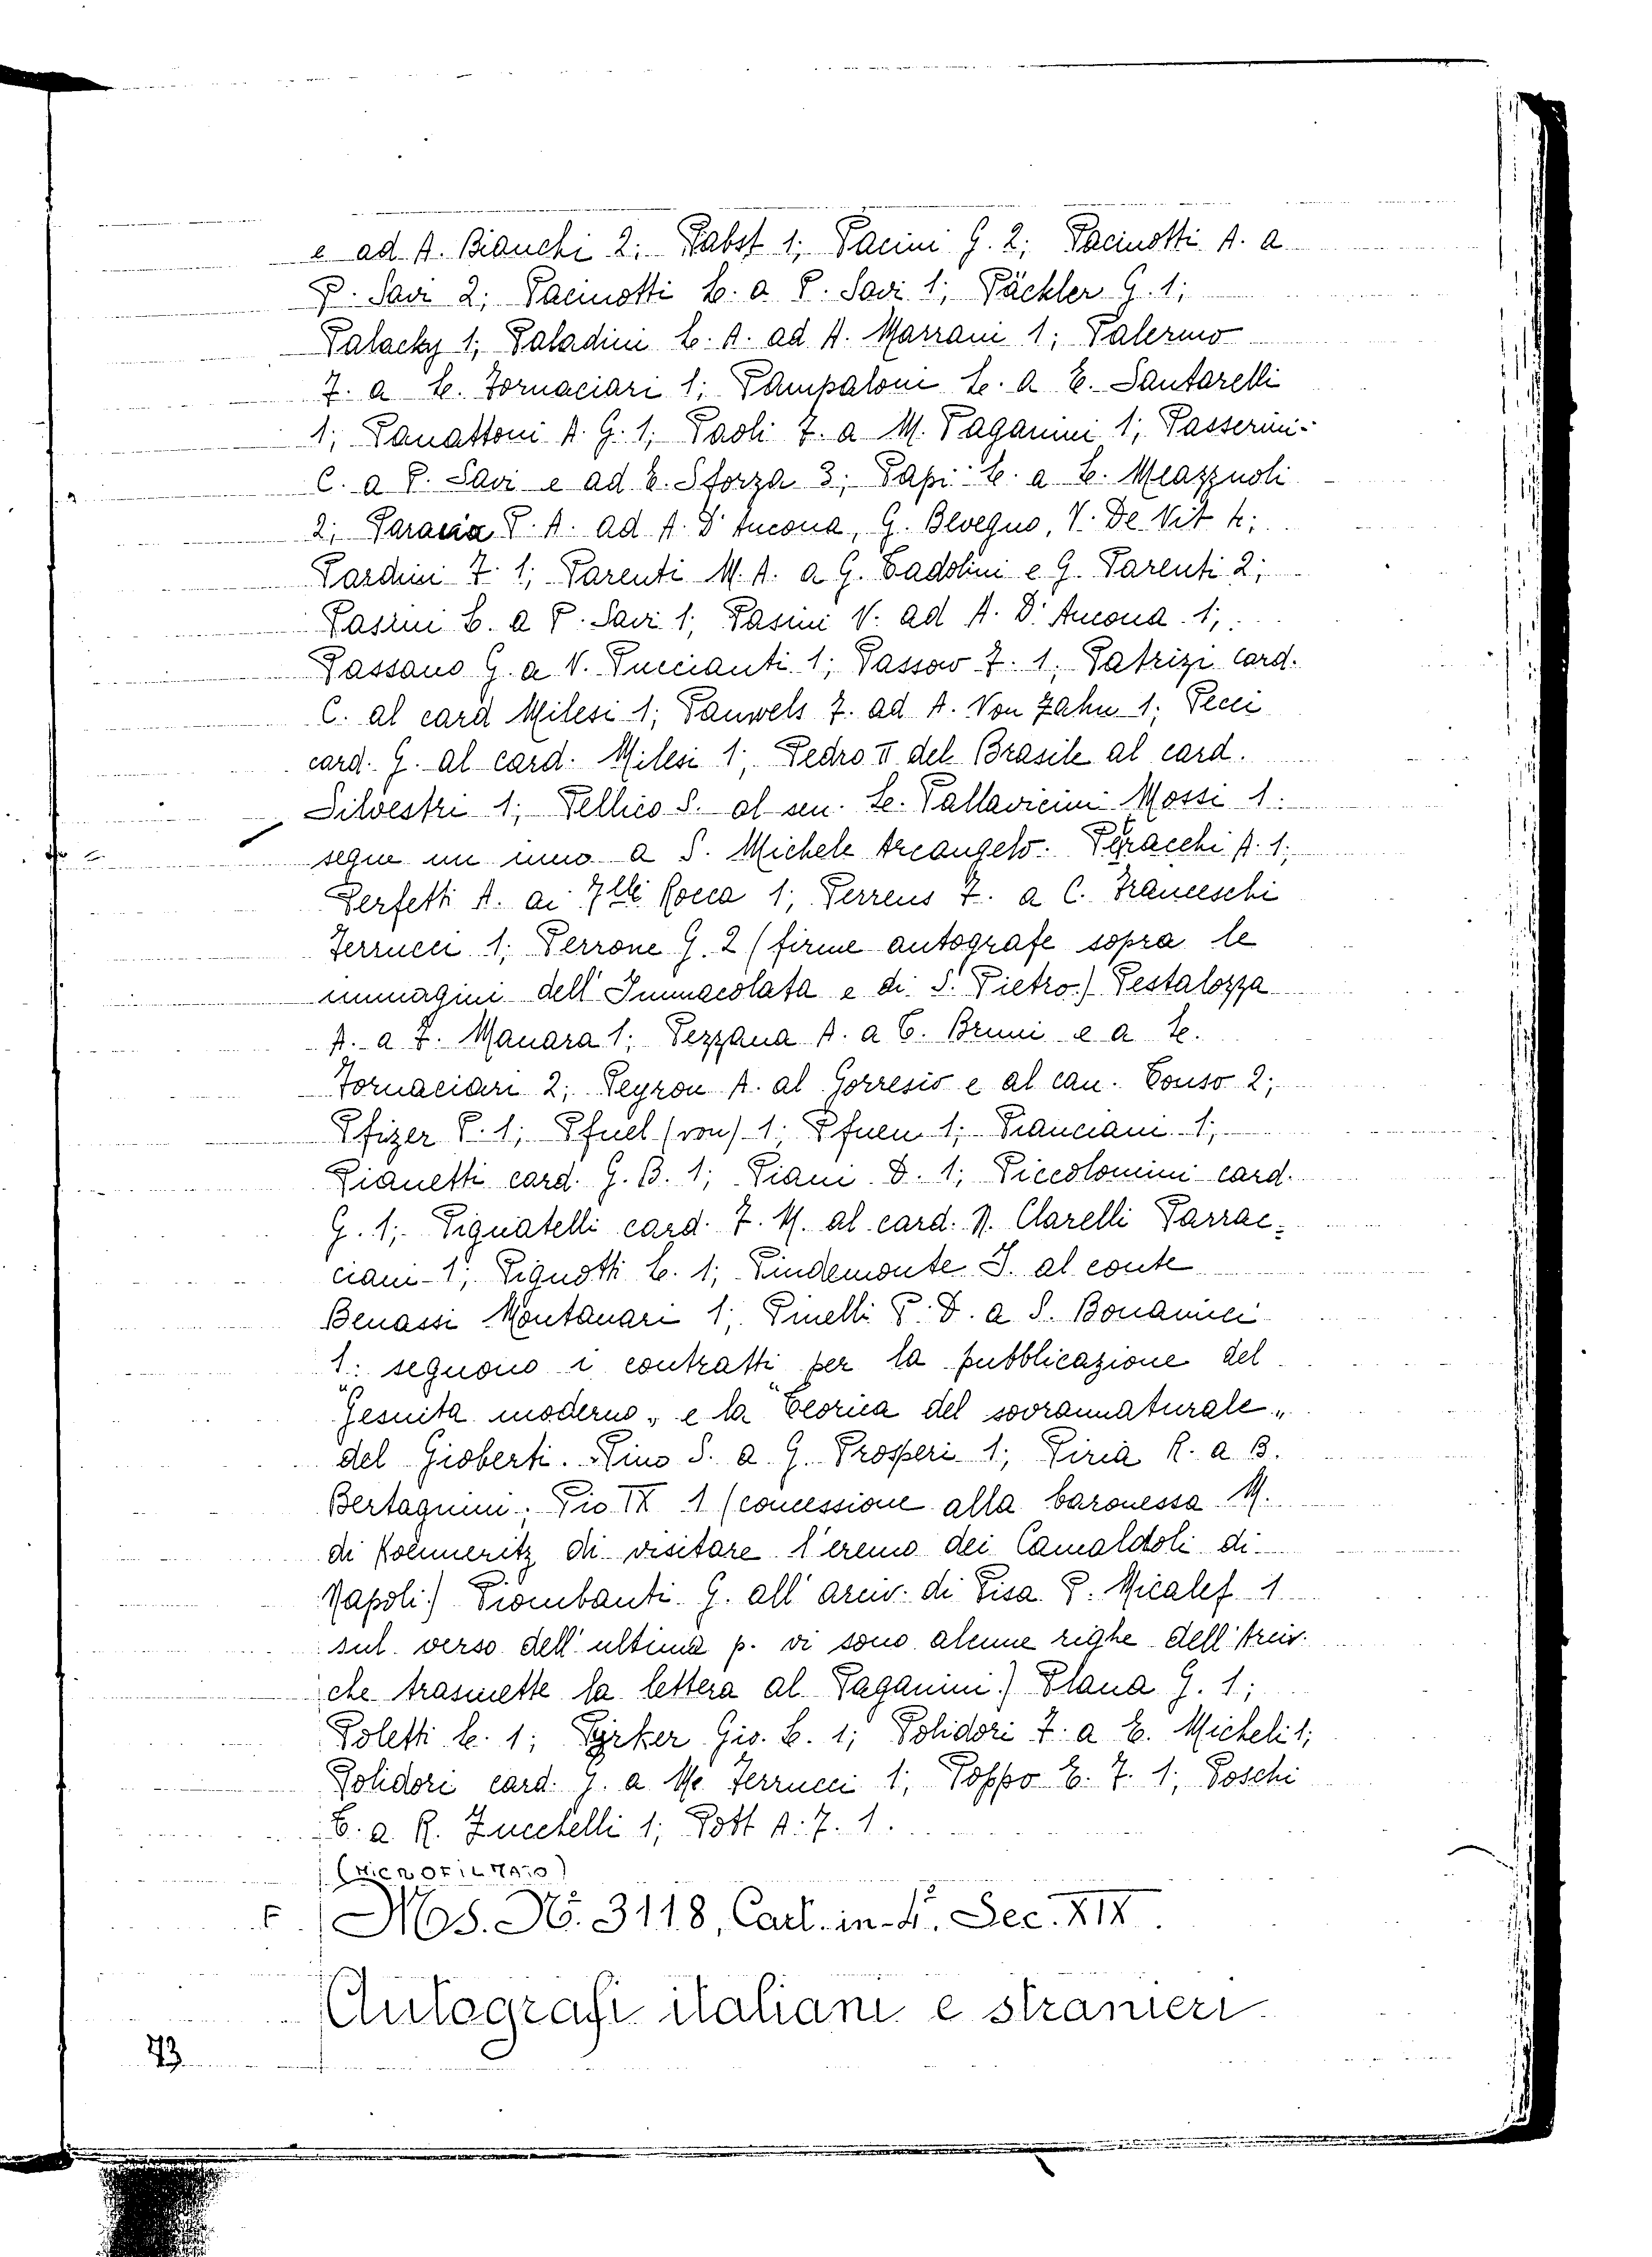 e ad A. Bianchi 2; Pabst 1; Pacini G. 2; Pacinotti A. a
P. Savi 2; Pacinotti L. a P. Savi 1; Päckler G. 1;
Palacky 1; Paladini L. A. ad A. Marrani 1; Palermo
F. a L. Fornaciari 1; Pampaloni L. a E. Santarelli
1; Panattoni A. G. 1; Paoli F. a M. Paganini 1; Passerini
C. a P. Savi e ad E. Sforza 3; Papi L. a E. Meazzuoli
2; Paravia P. A. ad A. D'Ancona, G. Bevegno, V. De Vit 4;
Pardini F. 1; Parenti M. A. a G. Cadolini e G. Parenti 2;
Pasini L. a P. Savi 1; Pasini V. ad A. D'Ancona 1;
Passano G. a V. Puccianti 1; Passow F. 1; Patrizi card.
C. al card Milesi 1; Pauwels F. ad A. Von Zahn 1; Pecci
card. G. al card. Milesi 1; Pedro II del Brasile al card.
Silvestri 1; Pellico S. al sen. L. Pallavicini Mossi 1:
segue un inno a S. Michele Arcangelo. Peracchi A. 1;
Perfetti A. ai Flli Rocca 1; Perrens F. a C. Franceschi
Ferrucci 1; Perrone G. 2 (firme autografe sopra le
immagini dell'Immacolata e di S. Pietro.) Pestalozza
A. a F. Manara 1; Pezzana A. a C. Bruni e a L.
Fornaciari 2; Peyron A. al Gorresio e al can. Couso 2;
Pfizer P. 1; Pfuel (von) 1; Pfuen 1; Pianciani 1;
Pianetti card. G. B. 1; Piani D. 1; Piccolomini card.
G. 1; Pignatelli card. F. M. al card. N. Clarelli Parrac-
ciani 1; Pignotti L. 1; Pindemonte I. al conte
Benassi Montanari 1; Pinelli P. D. a S. Bonamici
1: seguono i contratti per la pubblicazione del
"Gesuita moderno" e la "Teorica del sovrannaturale"
del Gioberti. Pino S. a G. Prosperi 1; Piria R. a B.
Bertagnini; Pio IX 1 (concessione alla baronessa M.
di Kolmneritz di visitare l'eremo dei Camaldoli di
Napoli.) Piombanti G. all'arciv. di Pisa P. Micalef 1
sul verso dell'ultima p. vi sono alcune righe dell'Arciv.
che trasmette la lettera al Paganini.) Plana G. 1;
Poletti L. 1; Pyrker Gio. L. 1; Polidori F. a E. Micheli 1;
Polidori card. G. a M. Ferrucci 1; Poppo E. F. 1; Poschi
E. a R. Zuccbelli 1; Pott A. F. 1.
(MICROFILMATO)
F Mss. N°. 3118, Cart. in-4°. Sec. XIX.
Autografi italiani e stranieri
73